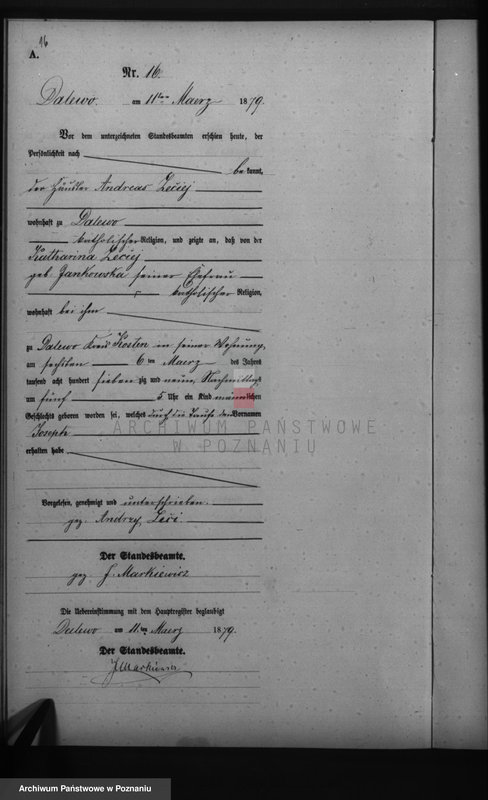 16
A.
Nr. 16.
Dalewo. am 11ten Maerz 1879.
Vor dem unterzeichneten Standesbeamten erschien heute, der
Persönlichkeit nach
bekannt,
der Häusler Andreas Leciej
wohnhaft zu Dalewo
katholischer Religion, und zeigte an, daß von der
Katharina Leciej
geb. Jankowska seiner Ehefrau
katholischer Religion,
wohnhaft bei ihm
zu Dalewo Kreis Kosten in seiner Wohnung,
am sechsten 6ten Maerz des Jahres
tausend acht hundert siebenzig und neun, Nachmittags
um fünf 5 Uhr ein Kind männlichen
Geschlechts geboren worden sei, welches durch die Taufe den Vornamen
Joseph
erhalten habe
Vorgelesen, genehmigt und unterschrieben.
gez. Andrzy Leci.
Der Standesbeamte.
gez J. Markiewicz
Die Uebereinstimmung mit dem Hauptregister beglaubigt
Dalewo am 11ten Maerz 1879.
Der Standesbeamte.
J Markiewicz
ARCHIWUM PAŃSTWOWE
W POZNANIU
Archiwum Państwowe w Poznaniu